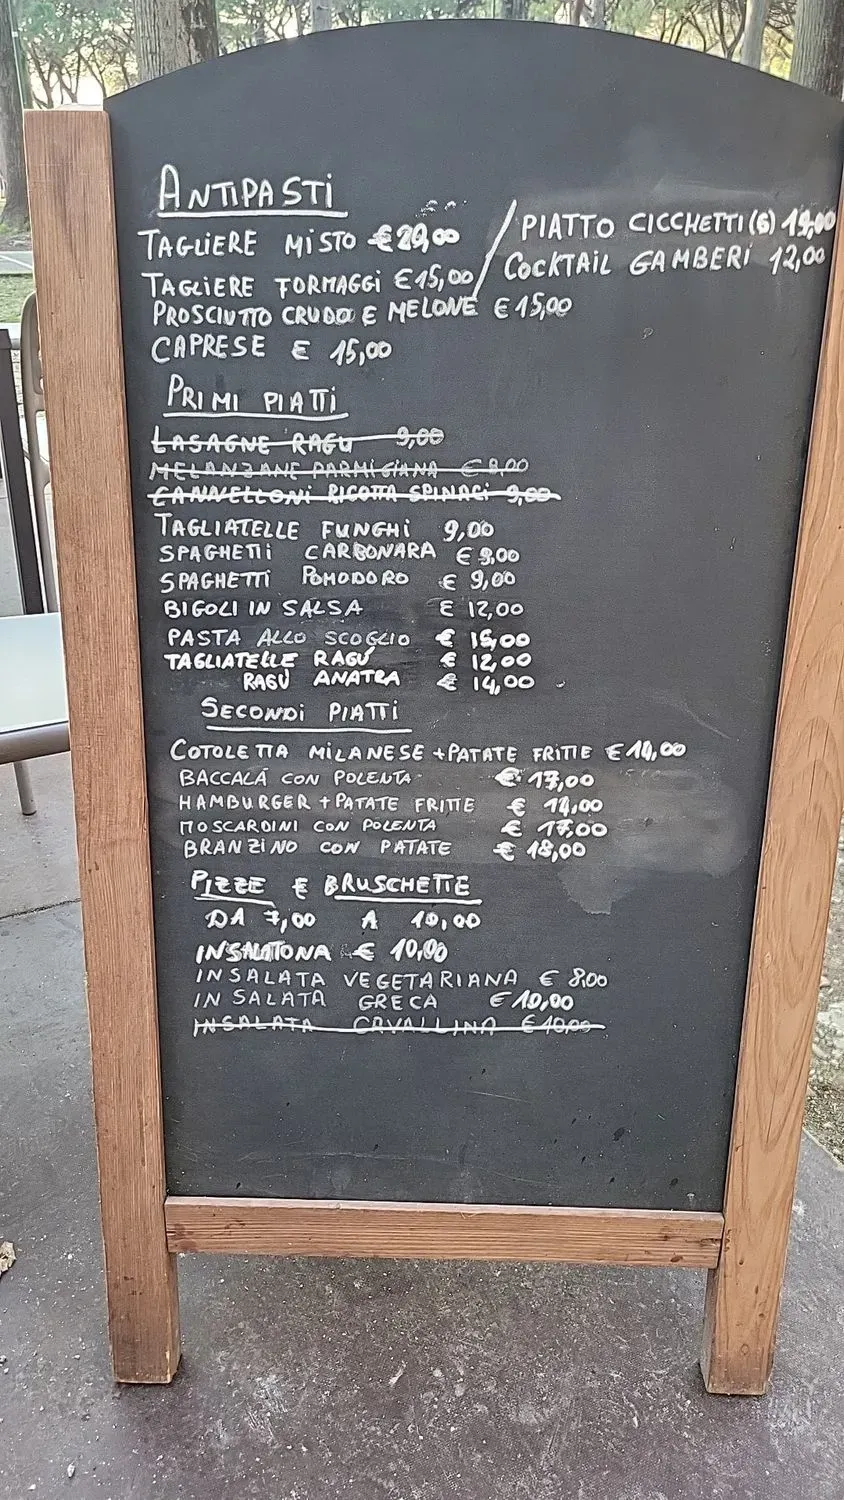 ANTIPASTI
TAGLIERE MISTO €20,00
/ PIATTO CICCHETTI (6) 15,00
TAGLIERE FORMAGGI €15,00
COCKTAIL GAMBERI 12,00
PROSCIUTTO CRUDO E MELONE €15,00
CAPRESE € 15,00
PRIMI PIATTI
LASAGNE RAGU 9,00
MELANZANE PARMIGIANA €
CANNELLONI RICOTTA SPINACI 9,00
TAGLIATELLE FUNGHI 9,00
SPAGHETTI CARBONARA € 9,00
SPAGHETTI POMODORO € 9,00
BIGOLI IN SALSA € 12,00
PASTA ALLO SCOGLIO €
TAGLIATELLE RAGÙ € 12,00
RAGÙ ANATRA € 14,00
SECONDI PIATTI
COTOLETTA MILANESE + PATATE FRITTE € 14,00
BACCALÁ CON POLENTA € 17,00
HAMBURGER + PATATE FRITTE € 14,00
MOSCARDINI CON POLENTA € 17,00
BRANZINO CON PATATE € 18,00
PIZZE E BRUSCHETTE
DA 7,00 A 10,00
INSALATONA € 10,00
INSALATA VEGETARIANA € 8,00
INSALATA GRECA € 10,00
INSALATA CAVALLINA € 10,00